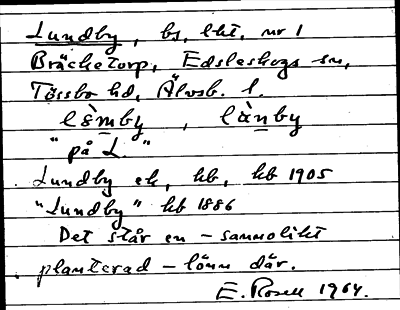 Lundby, bs, lht, nr 1
Bräcketorp, Edsleskogs sn,
Tössbo hd, Älvsb. l.
lȯ̀mby, lȧ̀nby
"på L."
Lundby ek, hb, hb 1905
"Lundby" hb 1886
Det står en - sannolikt
planterad - lönn där.
E. Rosell 1964.